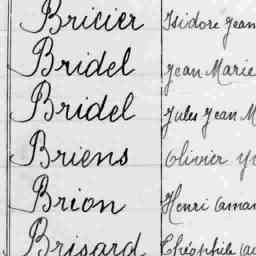 Bricier Isidore Jean
Bridel Jean Marie
Bridel Jules Jean M
Briens Olivier Yv
Brion Henri Aman
Brisard Théophile